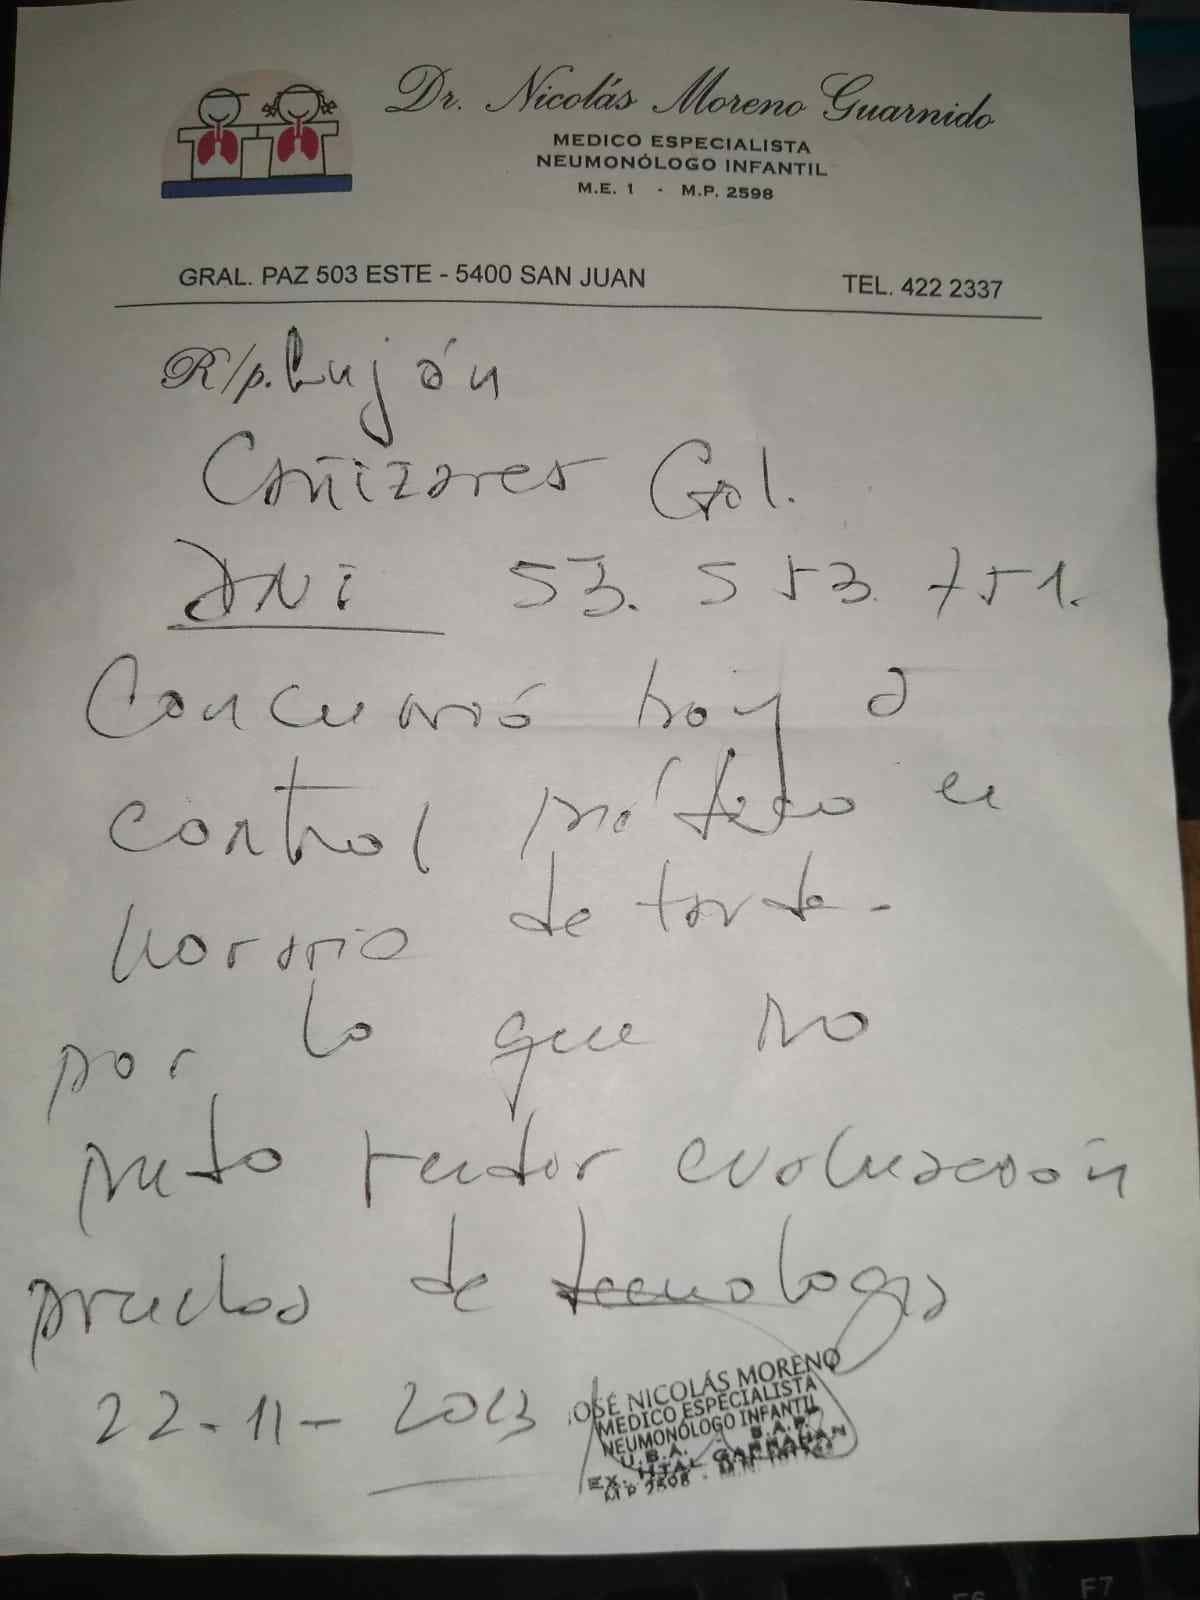 Dr. Nicolás Moreno Guarnido
MEDICO ESPECIALISTA
NEUMONÓLOGO INFANTIL
M.E. 1 - M.P. 2598
GRAL. PAZ 503 ESTE - 5400 SAN JUAN TEL. 422 2337
R/p. Luján
Cañizares
DNI 53.553.751.
Concurrió hoy a
control médico en
horario de tarde-
por lo que no
pudo rendir evaluación
prueba de tecnología
22-11-2023
JOSÉ NICOLÁS MORENO
MEDICO ESPECIALISTA
NEUMONÓLOGO INFANTIL
U.B.A. S.A.P.
EX. HTAL GARRAHAN
M P 2598